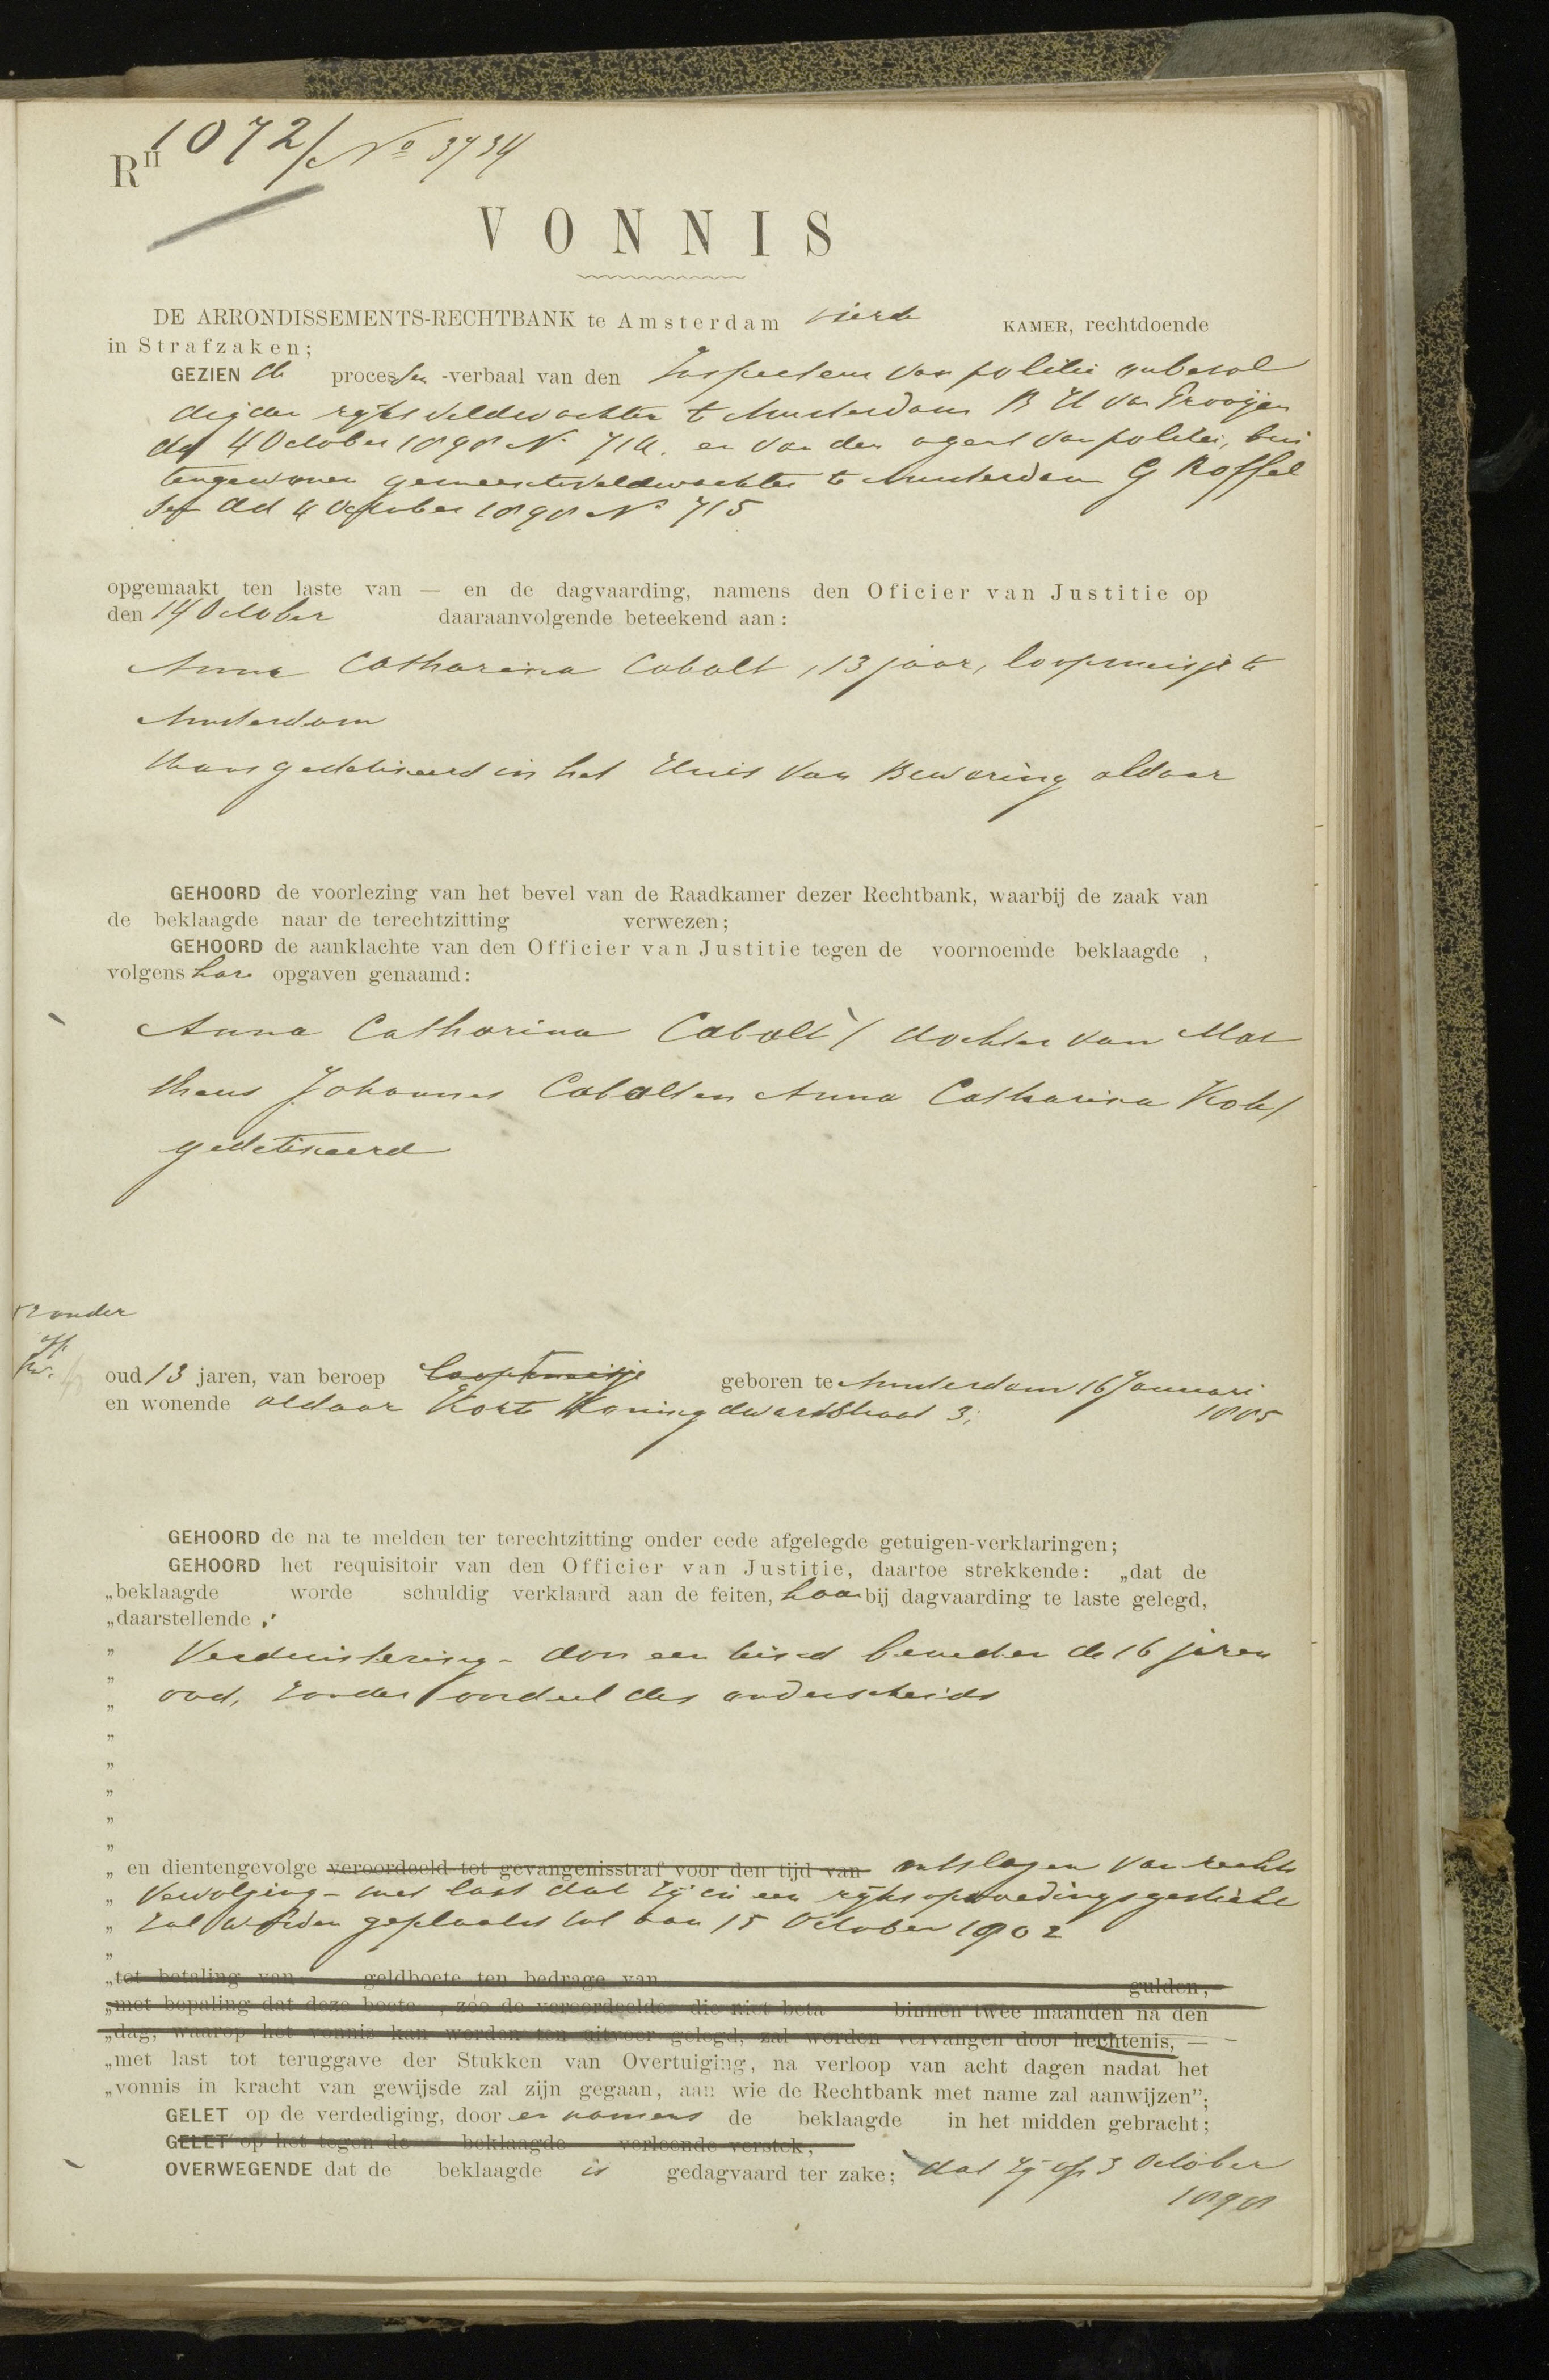 R II 1072/ No 3734
VONNIS
DE ARRONDISSEMENTS-RECHTBANK te Amsterdam vierde KAMER, rechtdoende
in Strafzaken;
GEZIEN de processen-verbaal van den Inspecteur van politie onbezol
digden rijksveldwachter te Amsterdam B H van
dd 4 October 1898 No 71a. en van den agent van politie, bui
tengewonen gemeenteveldwachter te Amsterdam G Roffel
sef dd 4 October 1898 No 715
opgemaakt ten laste van — en de dagvaarding, namens den Oficier van Justitie op
den 14 October daaraanvolgende beteekend aan:
Anna Catharina Cabalt, 13 jaar, loopmeisje te
Amsterdam
thans gedetineerd in het Huis van Bewaring aldaar
GEHOORD de voorlezing van het bevel van de Raadkamer dezer Rechtbank, waarbij de zaak van
de beklaagde naar de terechtzitting verwezen;
GEHOORD de aanklachte van den Officier van Justitie tegen de voornoemde beklaagde ,
volgens hare opgaven genaamd:
Anna Catharina Cabalt / dochter van Mat
theus Johannes Cabalt en Anna Catharina Kok /
gedetineerd
zonder
oud 13 jaren, van beroep loopmeisje geboren te Amsterdam 16 Januari
en wonende aldaar Korte Koningdwarsstraat 3; 1885
GEHOORD de na te melden ter terechtzitting onder eede afgelegde getuigen-verklaringen;
GEHOORD het requisitoir van den Officier van Justitie, daartoe strekkende: „dat de
„beklaagde worde schuldig verklaard aan de feiten, haar bij dagvaarding te laste gelegd,
„daarstellende :
„ Verduistering - door een kind beneden de 16 jaren
„ oud, zonder oordeel des onderscheids
„ en dientengevolge veroordeeld tot gevangenisstraf voor den tijd van ontslagen van rechts
„ vervolging - met last dat zij in een rijksopvoedingsgesticht
„ zal worden geplaatst tot aan 15 October 1902
„tot betaling van geldboete ten bedrage van gulden,
„met bepaling dat deze boete , zóo de veroordeelde die niet beta binnen twee maanden na den
„dag, waarop het vonnis kan worden ten uitvoer gelegd, zal worden vervangen door hechtenis, —
„met last tot teruggave der Stukken van Overtuiging, na verloop van acht dagen nadat het
„vonnis in kracht van gewijsde zal zijn gegaan, aan wie de Rechtbank met name zal aanwijzen";
GELET op de verdediging, door en namens de beklaagde in het midden gebracht;
GELET op het tegen de beklaagde verleende verstek;
OVERWEGENDE dat de beklaagde is gedagvaard ter zake; dat zij op 3 October
1898